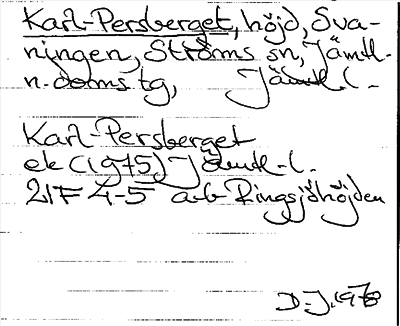 Karl-Persberget, höjd, Sva-
ningen, Ströms sn, Jämtl-
n. doms tg, Jämtl. l.
Karl-Persberget
ek (1975) Jämtl. l.
21F 4-5 a-b Ringsjöhöjden
D-J. 1978